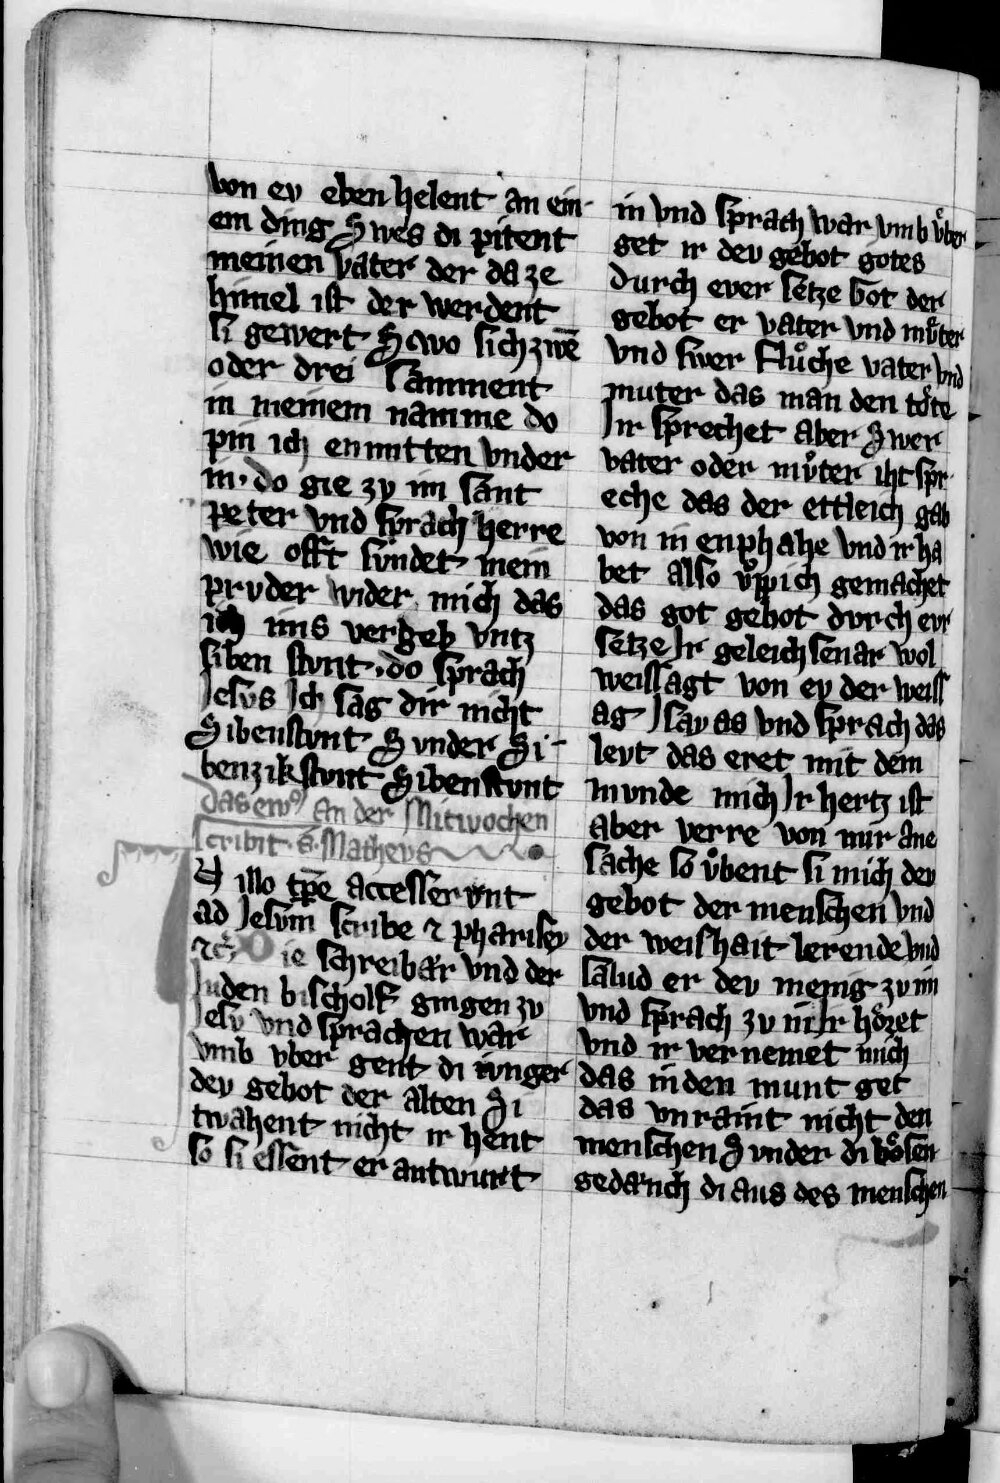 von ev eben helent an ein-
em ding Swes di pitent
meinen vater der da ze
himel ist der werdent
si gewert Swo sich zwē
oder drei samment
in meinem namme do
pin ich enmitten vnder
in. do gie zv im sant
Peter vnd sprach herre
wie offt svndet mein
prvder wider mich das
ich ims vergeb vntz
siben stvnt. do sprach
Jesvs Ich sag dir nicht
Sibenstvnt Svnder Si-
benzikstvnt Sibenstvnt
das ewꝰ an der Mitwochen
scribit. S. Mathevs
N illo tp̄e accesservnt
ad Jesvm scribe ⁊ pharisey
⁊c̃. Die schreibar vnd der
Juden bischolf gingen zv
Jesv vnd sprachen war
vmb vber gent di ivnger
dev gebot der alten Si
twahent nicht ir hent
so si essent er antwurt
in vnd sprach war vmb vͤber
get ir dev gebot gotes
durch ever setze Got der
gebot er vater vnd mvͦter
vnd swer fluͦche vater vnd
muter das man den toͤte
Ir sprechet aber Swer
vater oder mvͦter iht spr
eche das der ettleich gab
von in enphahe vnd ir ha
bet also vͤppich gemachet
das got gebot dvrch evr
setze Ir geleichsenar wol
weissagt von ev der weiss
ag Isayas vnd sprach das
levt das eret mit dem
mvnde mich Ir hertz ist
aber verre von mir ane
sache so vͤbent si mich dev
gebot der menschen vnd
der weishait lerende vnd
salud er dev menig zv im
vnd sprach zv in Ir hoͤret
vnd ir vernemet mich
das in den munt get
das vnraint nicht den
menschen Svnder di boͤsen
gedanch di aus des menschen